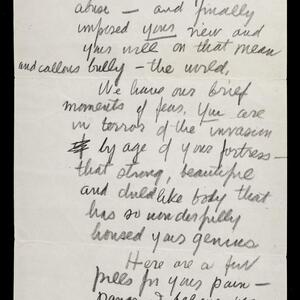 abuse — and finally
imposed your view and
your will on that mean
and callous bully — the world.
We have our brief
moments of fear. You are
in terror of the invasion
by age of your fortress —
that strong, beautiful
and childlike body that
has so wonderfully
housed your genius
Here are a few
pills for your pain —